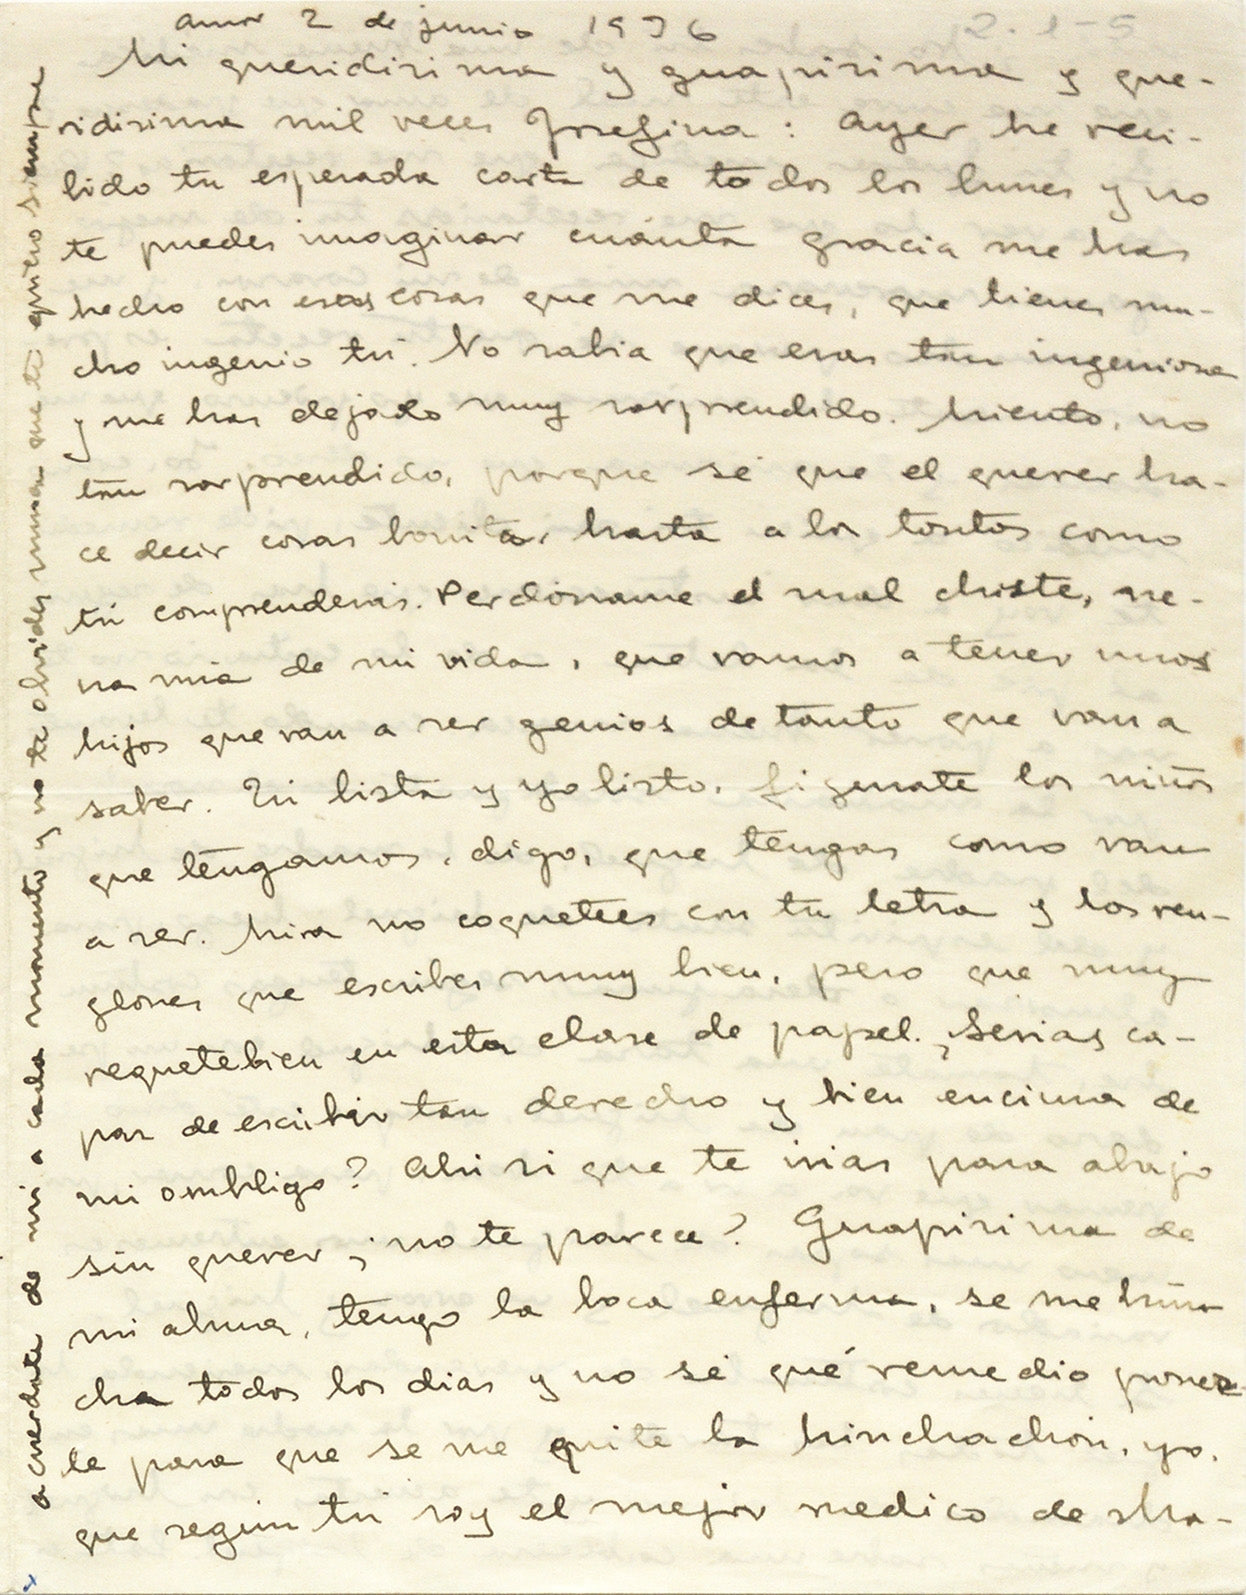 amor 2 de junio 1936
2-1-5
Mi queridisima y guapisima y que-
ridisima mil veces Josefina: Ayer he reci-
bido tu esperada carta de todos los lunes y no
te puedes imaginar cuánta gracia me has
hecho con esas cosas que me dices, que tienes mu-
cho ingenio tú. No sabia que eras tan ingeniosa
y me has dejado muy sorprendido. Miento, no
tan sorprendido, porque sé que el querer ha-
ce decir cosas bonitas hasta a los tontos como
tú comprenderás. Perdóname el mal chiste, ne-
na mia de mi vida, que vamos a tener unos
hijos que van a ser genios de tanto que van a
saber. Tú lista y yo listo, figurate los niños
que tengamos, digo, que tengas como van
a ser. Mira no coquetees con tu letra y los ren-
glones que escribes muy bien, pero que muy
requetebien en esta clase de papel. ¿Serias ca-
paz de escribir tan derecho y bien encima de
mi ombligo? Ahi si que te irias para abajo
sin querer ¿no te parece? Guapisima de
mi alma, tengo la boca enferma, se me hin
cha todos los dias y no sé qué remedio poner
le para que se me quite la hinchachón, yo,
que según tú soy el mejor medico de Ma-
acuerdate de mi a cada momento y no te olvides nunca que te quiero siempre